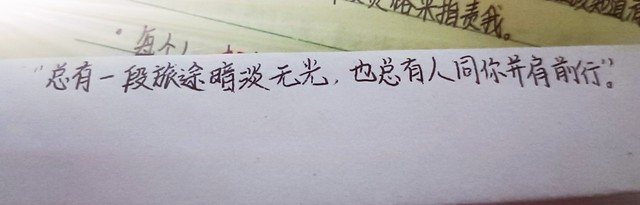 指责我。
“每个人
“总有一段旅途暗淡无光，也总有人同你并肩前行”。